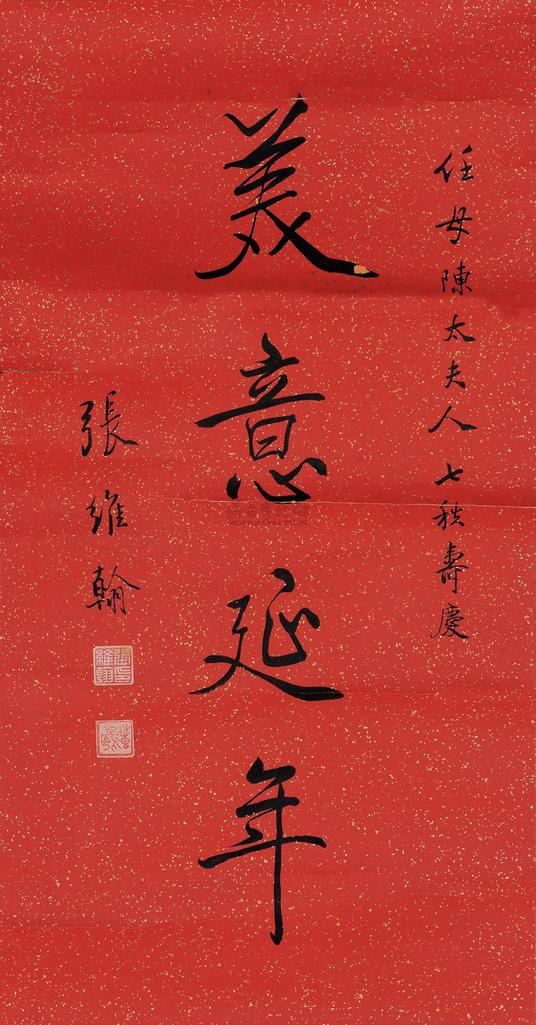 任母陳太夫人七秩壽慶
美意延年
張維翰